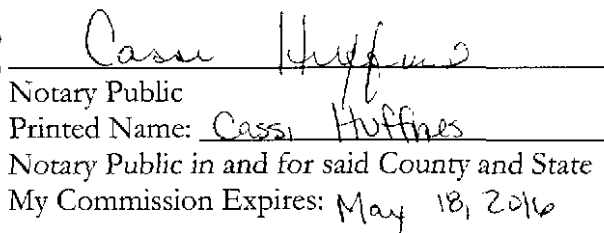 Cassi Huffines
Notary Public
Printed Name: Cassi Huffines
Notary Public in and for said County and State
My Commission Expires: May 18, 2016